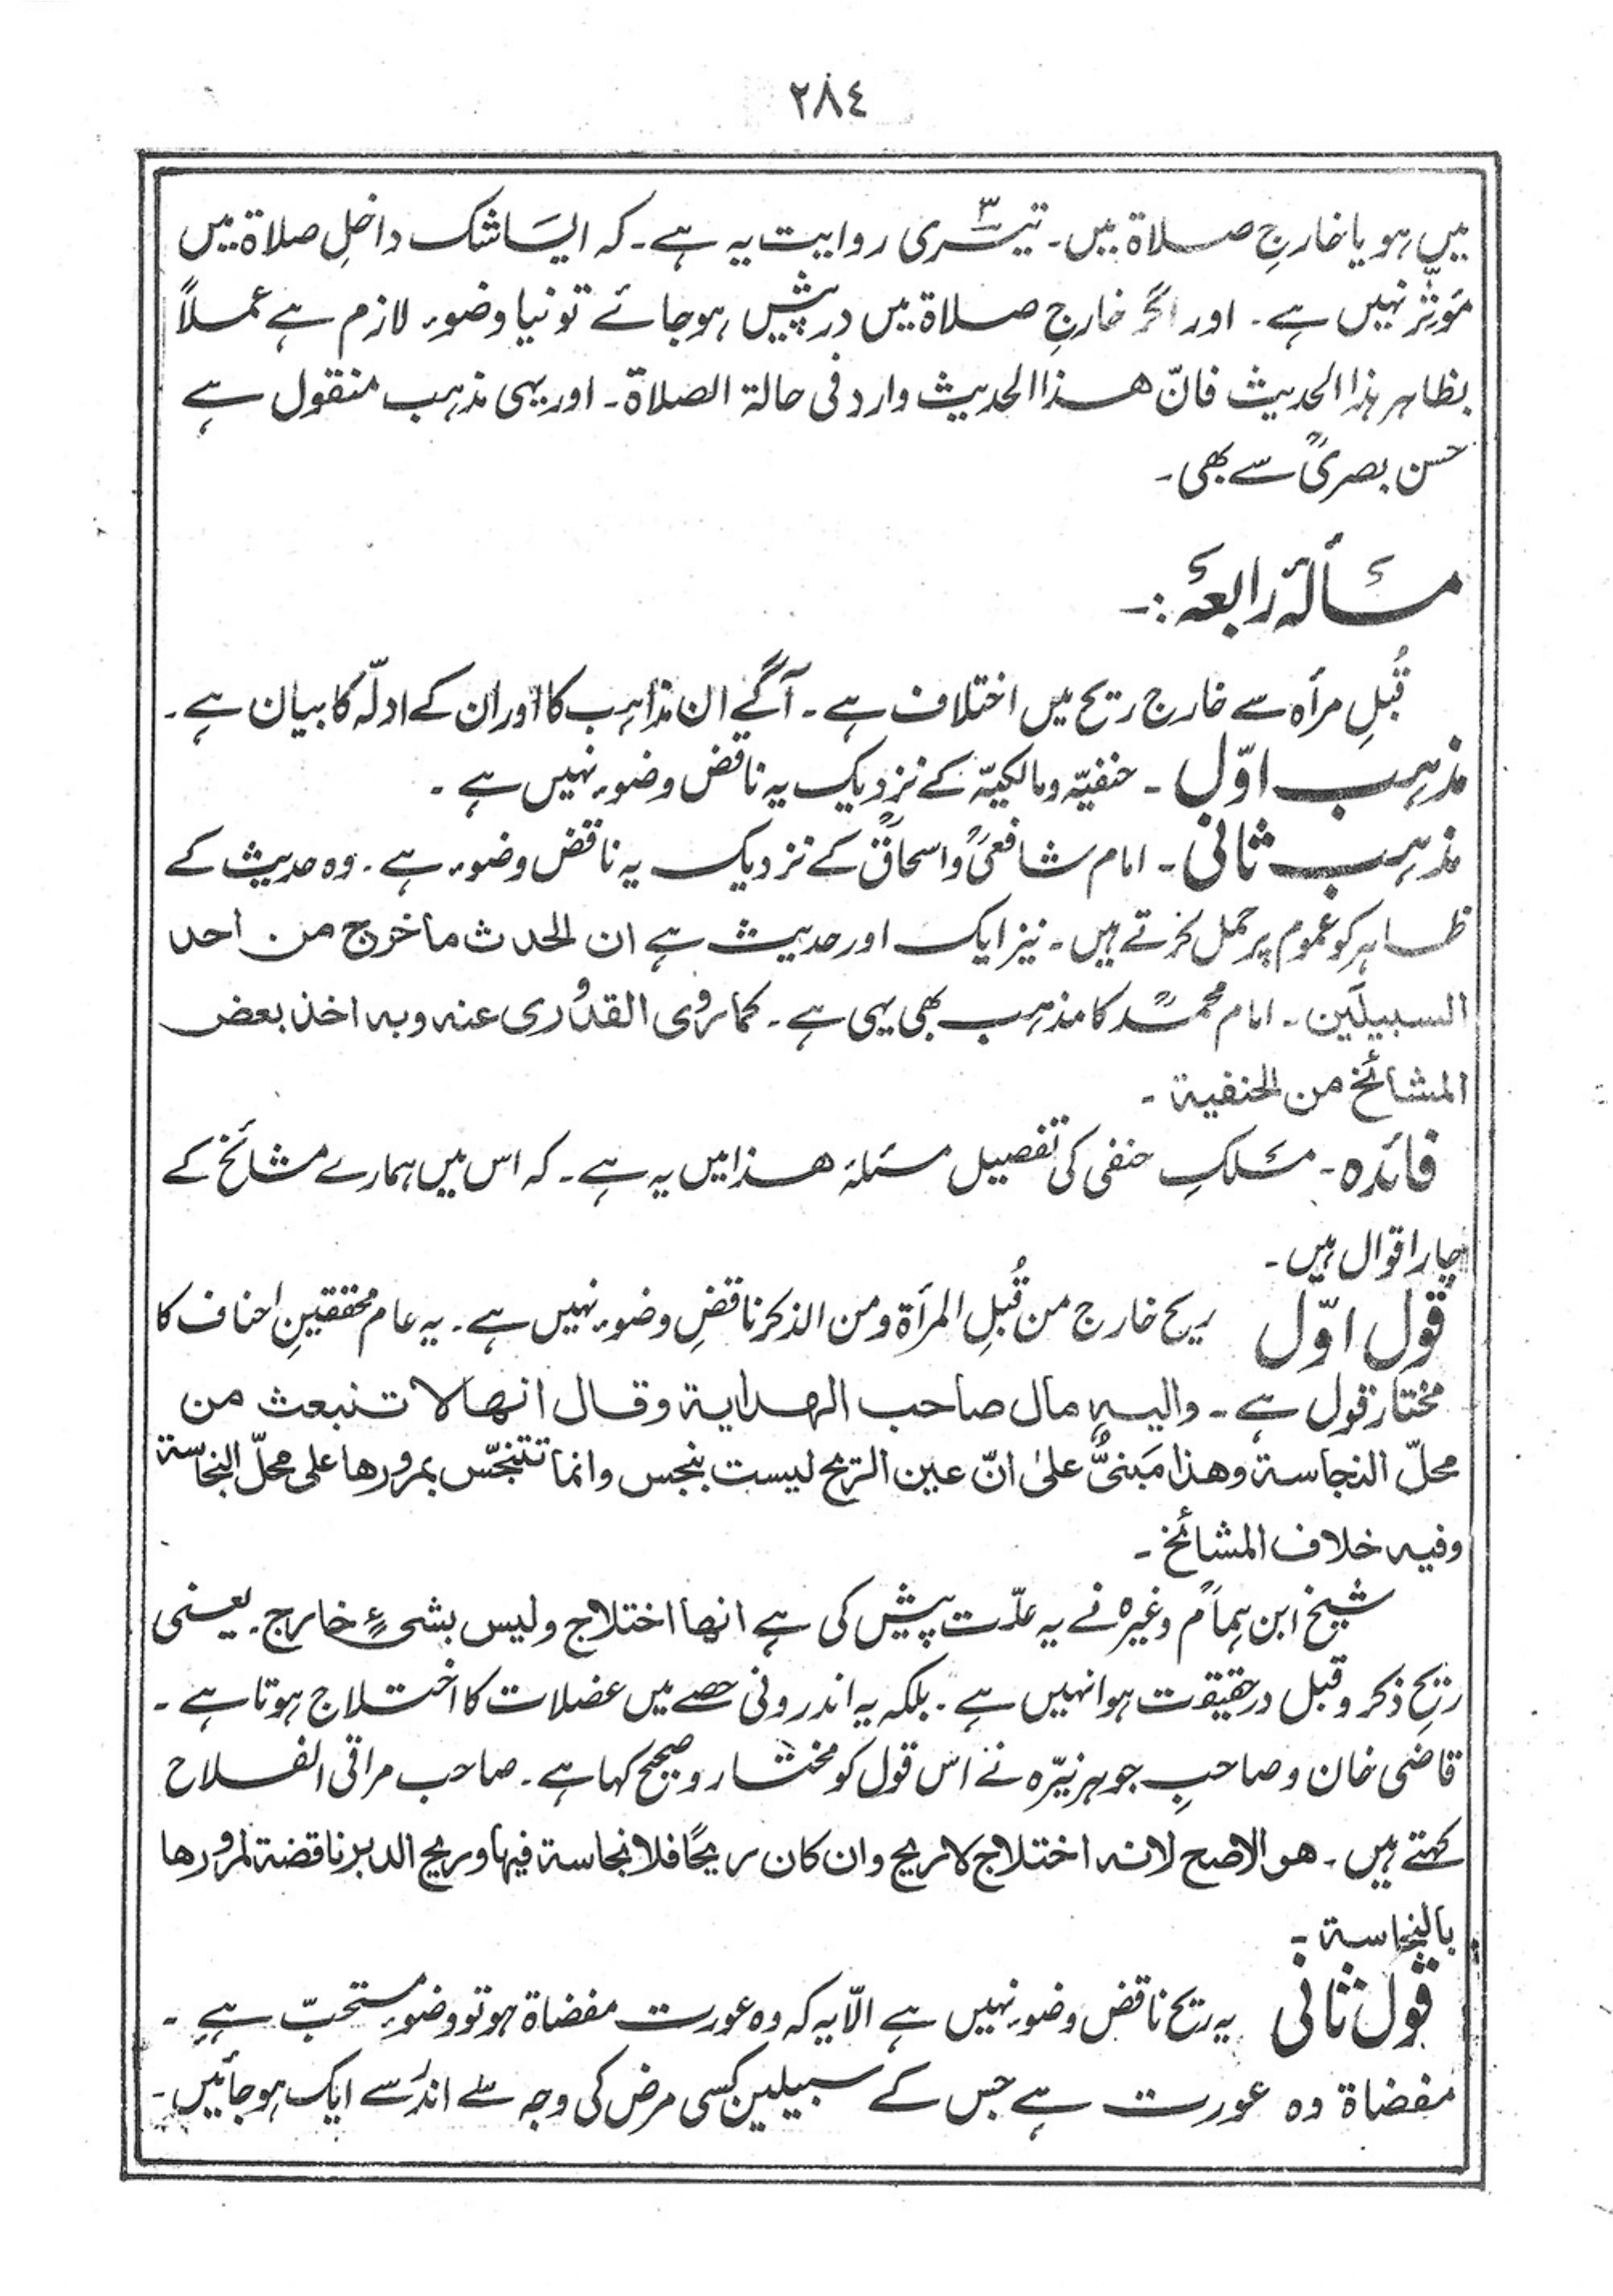 ٢٨٤
میں ہو یا خارجِ صلاۃ میں۔ تیسری۳ روایت یہ ہے۔ کہ ایسا شک داخلِ صلاۃ میں
مؤثّر نہیں ہے۔ اور اگر خارجِ صلاۃ میں درپیش ہوجائے تو نیا وضوء لازم ہے عملاً
بظاہر ہذا الحدیث فانّ ھذا الحدیث وارد فی حالۃ الصلاۃ۔ اور یہی مذہب منقول ہے
حسن بصریؒ سے بھی۔
مسألۂ رابعہ :۔
قُبلِ مرأہ سے خارج ریح میں اختلاف ہے۔ آگے ان مذاہب کا اور ان کے ادلّہ کا بیان ہے۔
مذہب اوّل ۔ حنفیّہ و مالکیّہ کے نزدیک یہ ناقض وضوء نہیں ہے ۔
مذہب ثانی ۔ امام شافعیؒ و اسحاقؒ کے نزدیک یہ ناقض وضوء ہے۔ وہ حدیث کے
ظاہر کو عموم پر حمل کرتے ہیں۔ نیز ایک اور حدیث ہے ان الحدث ما خرج من احد
السبیلَین ۔ امام محمدؒ کا مذہب بھی یہی ہے۔ کما روی القدُوری عنہ وبہ اخذ بعض
المشائخ من الحنفیۃ ۔
فائدہ ۔ مسلکِ حنفی کی تفصیل مسئلۂ ھذا میں یہ ہے۔ کہ اس میں ہمارے مشائخ کے
چار اقوال ہیں ۔
قول اوّل ریح خارج من قُبلِ المرأۃ ومن الذکر ناقضِ وضوء نہیں ہے۔ یہ عام محققینِ احناف کا
مختار قول ہے ۔ والیہ مال صاحب الھدایۃ وقال انھا لا تنبعث من
محلّ النجاسۃ وھذا مَبنیٌّ علیٰ انّ عین الریح لیست بنجس وانما تتنجّس بمرورھا علی محلّ النجاسۃ
وفیہ خلاف المشائخ ۔
شیخ ابن ہمامؒ وغیرہ نے یہ علّت پیش کی ہے انھا اختلاج ولیس بشیءٍ خارج۔ یعنی
ریحِ ذکر و قبل درحقیقت ہوا نہیں ہے۔ بلکہ یہ اندرونی حصے میں عضلات کا اختلاج ہوتا ہے ۔
قاضی خان و صاحبِ جوہر نیّرہ نے اس قول کو مختار و صحیح کہا ہے۔ صاحب مراقی الفلاح
کہتے ہیں ۔ ھو الاصح لانہ اختلاج لا ریح وان کان ریحًا فلا نجاسۃ فیھا وریح الدبر ناقضۃ لمرورھا
بالنجاسۃ ۔
قول ثانی یہ ریح ناقض وضوء نہیں ہے الّا یہ کہ وہ عورت مفضاۃ ہو تو وضوء مستحبّ ہے ۔
مفضاۃ وہ عورت ہے جس کے سبیلین کسی مرض کی وجہ سے اندر سے ایک ہوجائیں ۔